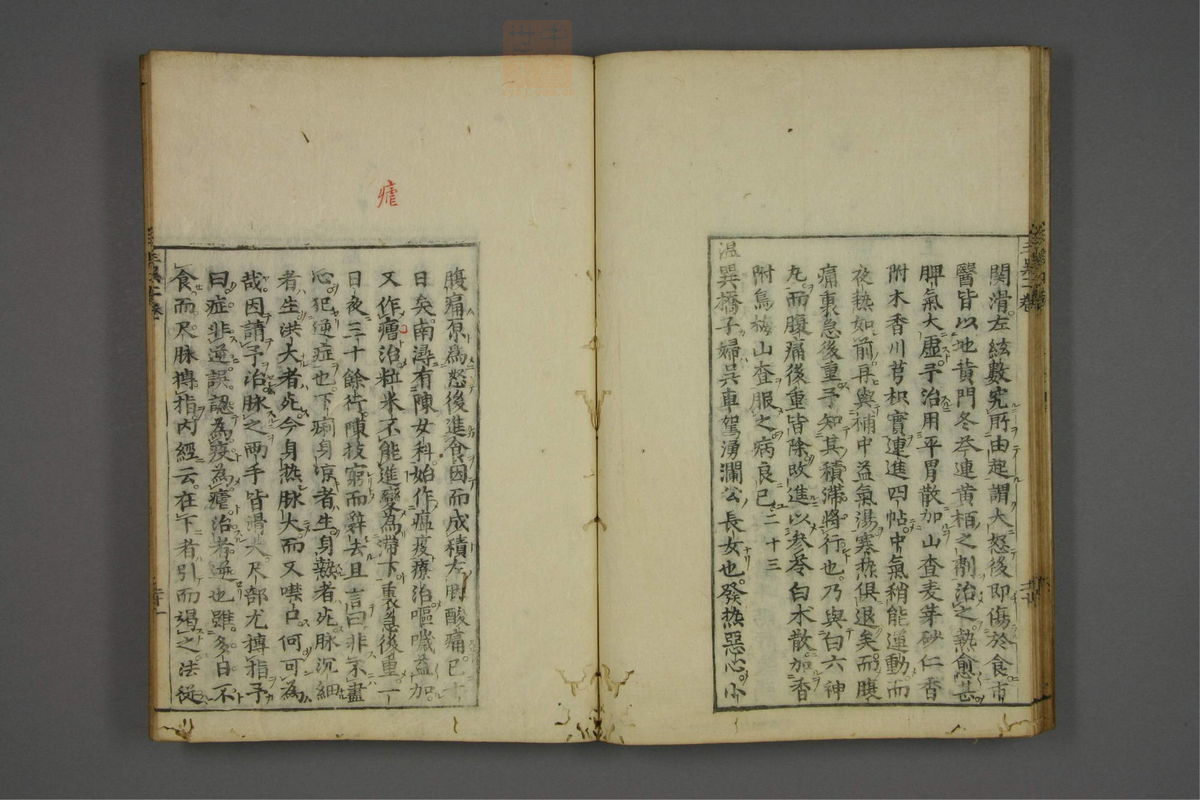 関滑左絃數究所由起謂大怒後即傷於食市
醫皆以地黄門冬芩連黄栢之劑治之熱愈甚
脾氣大虛予治用平胃散加山査麦芽砂仁香
附木香川芎枳實連進四帖中氣稍能運動而
夜熱如前再與補中益氣湯寒熱俱退矣而腹
痛裏急後重予知其積滞將行也乃與白六神
丸而腹痛後重皆除改進以参苓白术散加香
附烏梅山査服之病良已二十三
温巽橋子婦呉車駕湧瀾公長女也發热惡心小
腹痛原為怒後進食因而成積左胠酸痛已十
日矣南潯有陳女科始作瘟疫療治嘔噦益加
又作瘧治粒米不能進變為滞下裏急後重一
日夜三十餘行陳技窮而辭去且言曰非不盡
心犯逆症也下痢身凉者生身熱者死脉沉細
者生洪大者死今身热脉大而又噤口何可為
哉因請予治脉之兩手皆滑大尺部尤搏指予
曰症非逆誤認為疫為瘧治者逆也雖多日不
食而尺脉搏指内經云在下者引而竭之法従
瘧